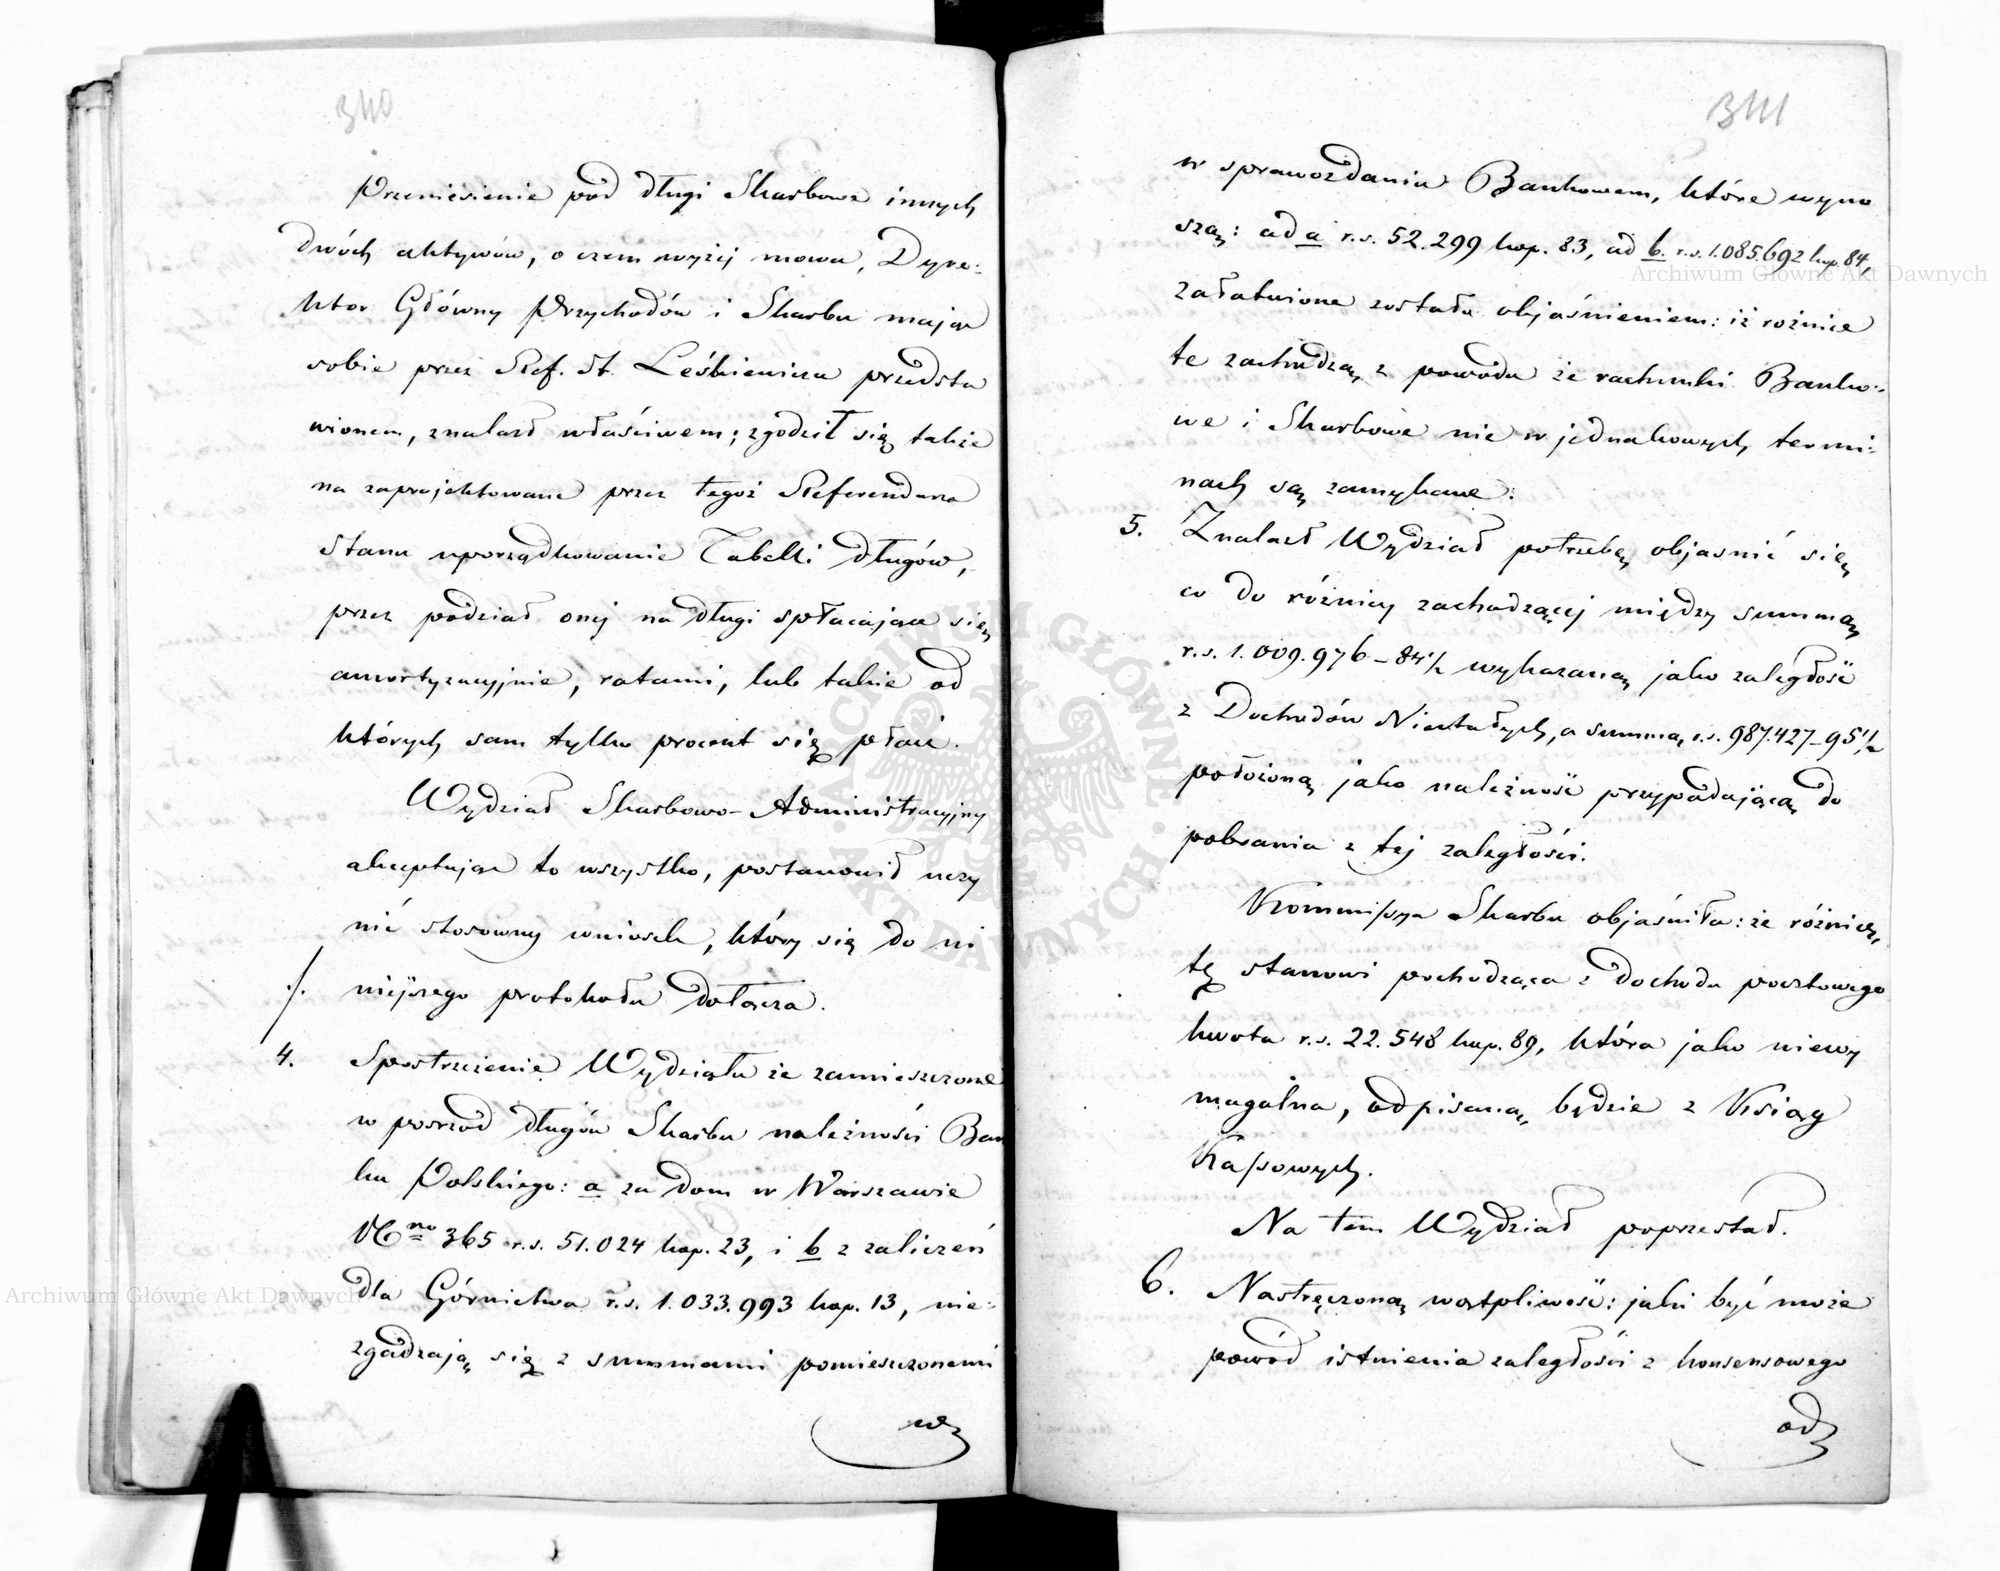 340
Przeniesienie pod długi Skarbowe innych
dwóch aktywów, o czem wyżej mowa, Dyre-
ktor Główny Przychodów i Skarbu mając
sobie przez Ref. St. Leśkiewicza przedsta
wionem, znalazł właściwem; zgodził się także
na zaprojektowane przez tegoż Referendarza
Stanu uporządkowanie Tabelli długów,
przez podział onej na długi spłacające się
amortyzacyjnie, ratami, lub takie od
których sam tylko procent się płaci.
Wydział Skarbowo-Administracyjny
akceptując to wszystko, postanowił uczy
nić stosowny wniosek, który się do ni
./. niejszego protokołu dołącza.
4. Spostrzeżenie Wydziału że zamieszczone
w pośrzód długów Skarbu należności Ban
ku Polskiego: a za dom w Warszawie
No 365 r.s. 51.024 kop. 23, i b z zaliczeń
dla Górnictwa r.s. 1.033.993 kop. 13, nie-
zgadzają się z summami pomieszczonemi
w
341
w sprawozdaniu Bankowem, które wyno
szą: ad a r.s. 52.299 kop. 83, ad b. r.s. 1.085.692 kop. 84,
załatwione zostało objaśnieniem: iż rożnice
te zachodzą z powodu że rachunki Banko-
we i Skarbowe nie w jednakowych termi-
nach są zamykane.
5. Znalazł Wydział potrzebę objasnić się
co do różnicy zachodzącej między summą
r.s. 1.009.976–84½ wykazaną jako zaległość
z Dochodów Niestałych, a summą r.s. 987.427–95½
położoną jako należność przypadającą do
pobrania z tej zaległości.
Kommissya Skarbu objaśniła: że różnicę
tę stanowi pochodząca z dochodu pocztowego
kwota r.s. 22.548 kop. 89, która jako niewy
magalna, odpisaną będzie z Ksiąg
Kassowych.
Na tem Wydział poprzestał.
6. Nastręczoną wątpliwość: jaki być może
powód istnienia zaległości z konsensowego
od
Archiwum Główne Akt Dawnych
Archiwum Główne Akt Dawnych
ARCHIWUM GŁÓWNE AKT DAWNYCH